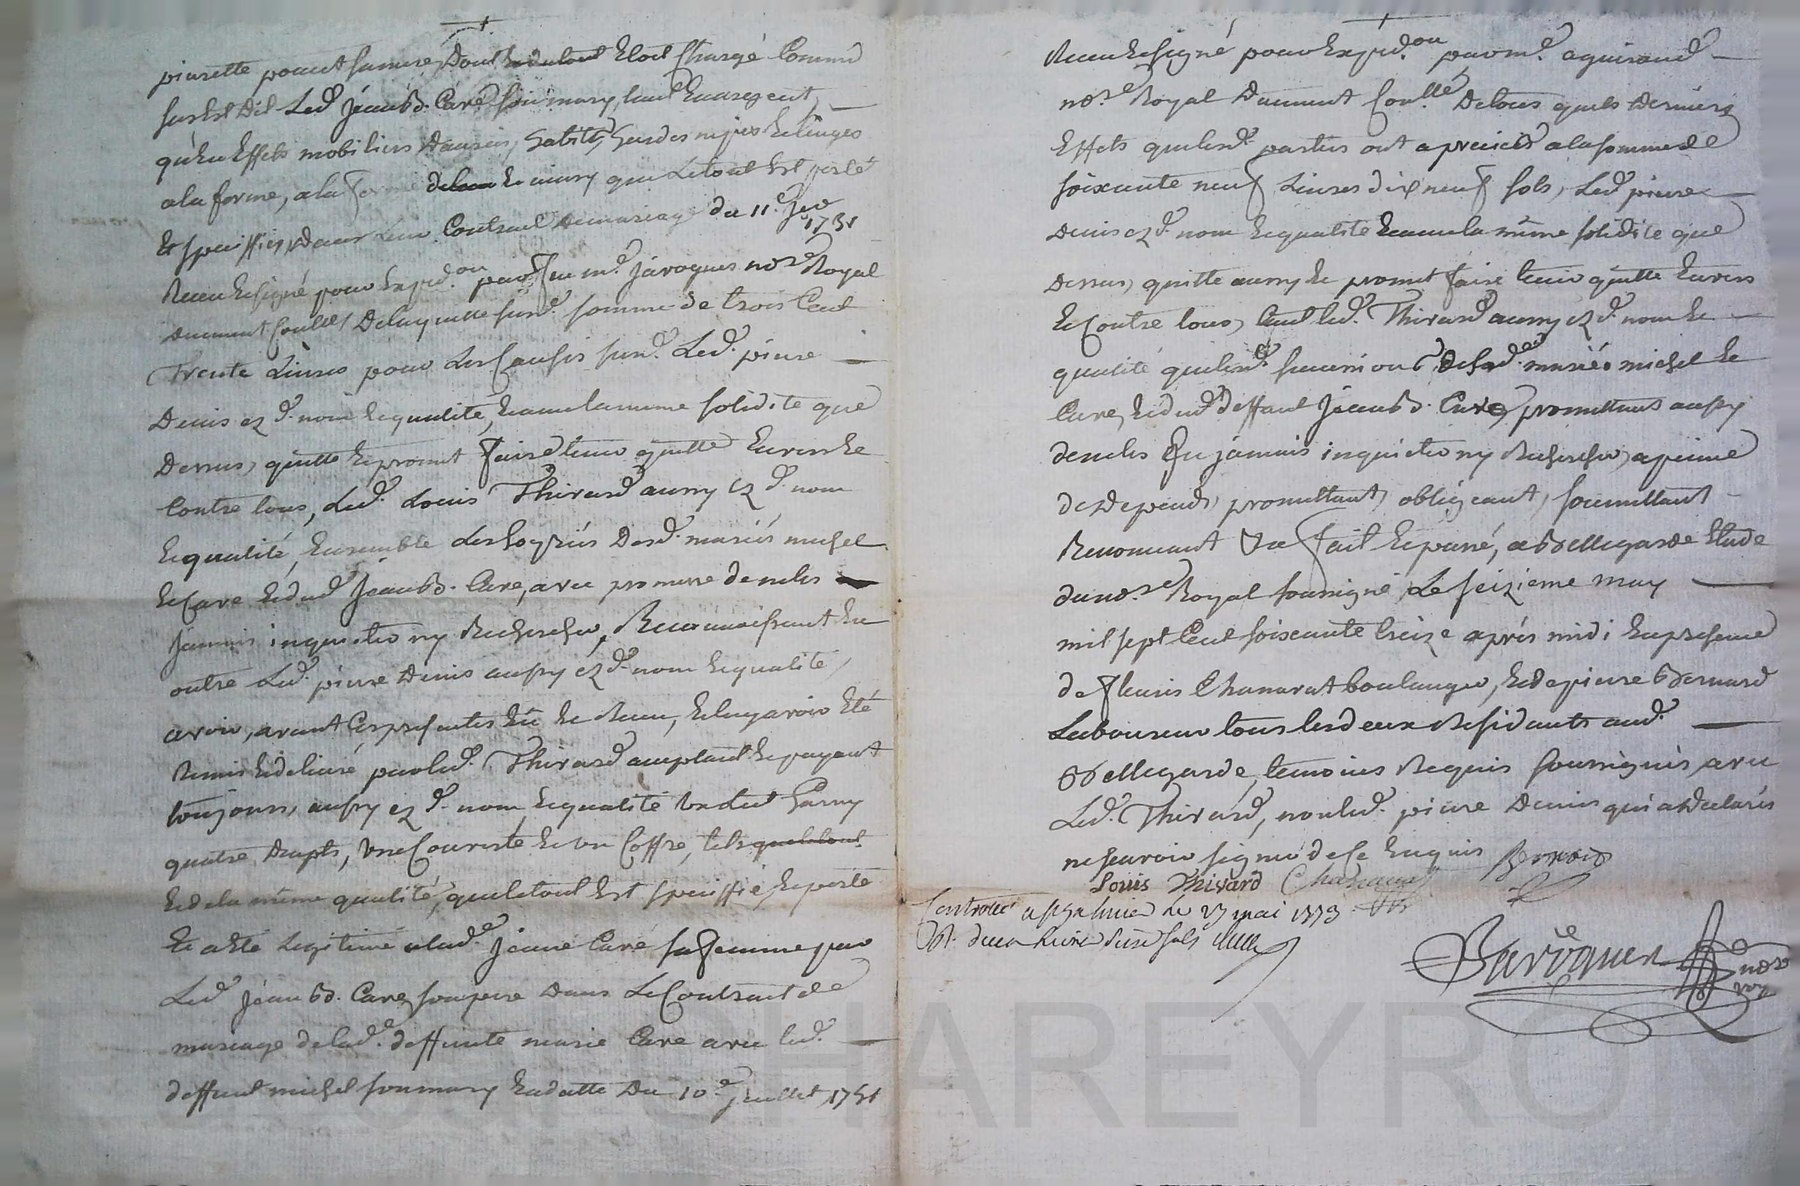 pierrette pouect sa mere, Dont étoit Chargé Comme
sus Est Dit Led. Jean Bd. Caré son mary, tant En argent,
qu'En Effets mobiliers Danrées, habits, hardes nipes Et linges
a la forme, a la Et ainsy que Letout Est porté
Et spéciffié, Dans Leur Contrat De mariage du 11e. 1751
Receu Et signé pour Expedon. par feu me. Javogues nore. Royal
Duement Coullé Delaquelle susd. somme de trois Cent
Trente Livres pour Les Causes susd. Led. pierre
Denis ezd. nom Et qualité, Et avec la meme solidité que
Dessus, quitte Et promet faire tenir quitte Envers Et
Contre tous, Led. Louis Thivard aussy ezd. nom
Et qualité, Ensemble Les hoyriés Desd. mariés michel
Et Caré Et dud. Jean Bd. Caré, avec promesse de ne les
Jamais inquietter ny Rechercher, Reconnoissant En
outre Led. pierre Denis aussy ezd. nom Et qualité,
avoir, avant Ces presentes Eû Et Receu, Et luy avoir Eté
Remis Et delivré par led. Thivard acceptant Et payant
toujours, aussy ezd. nom, Et qualité un Lict Garny
quatre Draps, une Couverte Et un Coffre, tels
Et de la même qualité, que le tout Est speciffié, Et porté
Et a Eté Legitimé a lade. Jeane Caré sa femme par
Led. Jean Bd. Caré, son pere Dans Le Contract de
mariage de lade. deffunte marie Caré avec led.
deffunt michel son mary En datte Du 10e. Juillet 1751
Receu Et signé pour Expedon. par me. aguiraud
nore. Royal Duement Coullé, De tous quels Derniers
Effets que lesd. parties ont apreciés a la somme de
soixante neuf Livres dix neuf sols, Led. pierre
Denis ezd. nom Et qualité Et avec la même solidité que
Dessus, quitte aussy Et promet faire tenir quitte Envers
Et Contre tous, tant led. Thivard aussy ezd. nom Et
qualité que lesd. hoyriés Desd. mariés michel Et
Caré, Et dud. deffunt Jean Bd. Caré, promettant aussy
de ne les En jamais inquietter ny Rechercher, a peine
de tous depends, promettant, obligeant, soumettant
Renonceant &a fait Et passé, a Bellegarde Etude
du nore. Royal soussigné, Le seizieme may
mil sept Cent soixante treize aprés midi En presence
de fleuris Chanavat boulanger, Et de pierre Bernard
Laboureur tous les deux Residants aud.
Bellegarde, temoins Requis soussignés, avec
Led. Thivard, non led. pierre Denis qui a declarés
ne sçavoir signer de ce Enquis
Louis Thivard Chanavat Bernard
Controllé a St Galmier Le 27 mai 1773
Rt. deux Livres
Javogues nore
roy
CHAREYRON